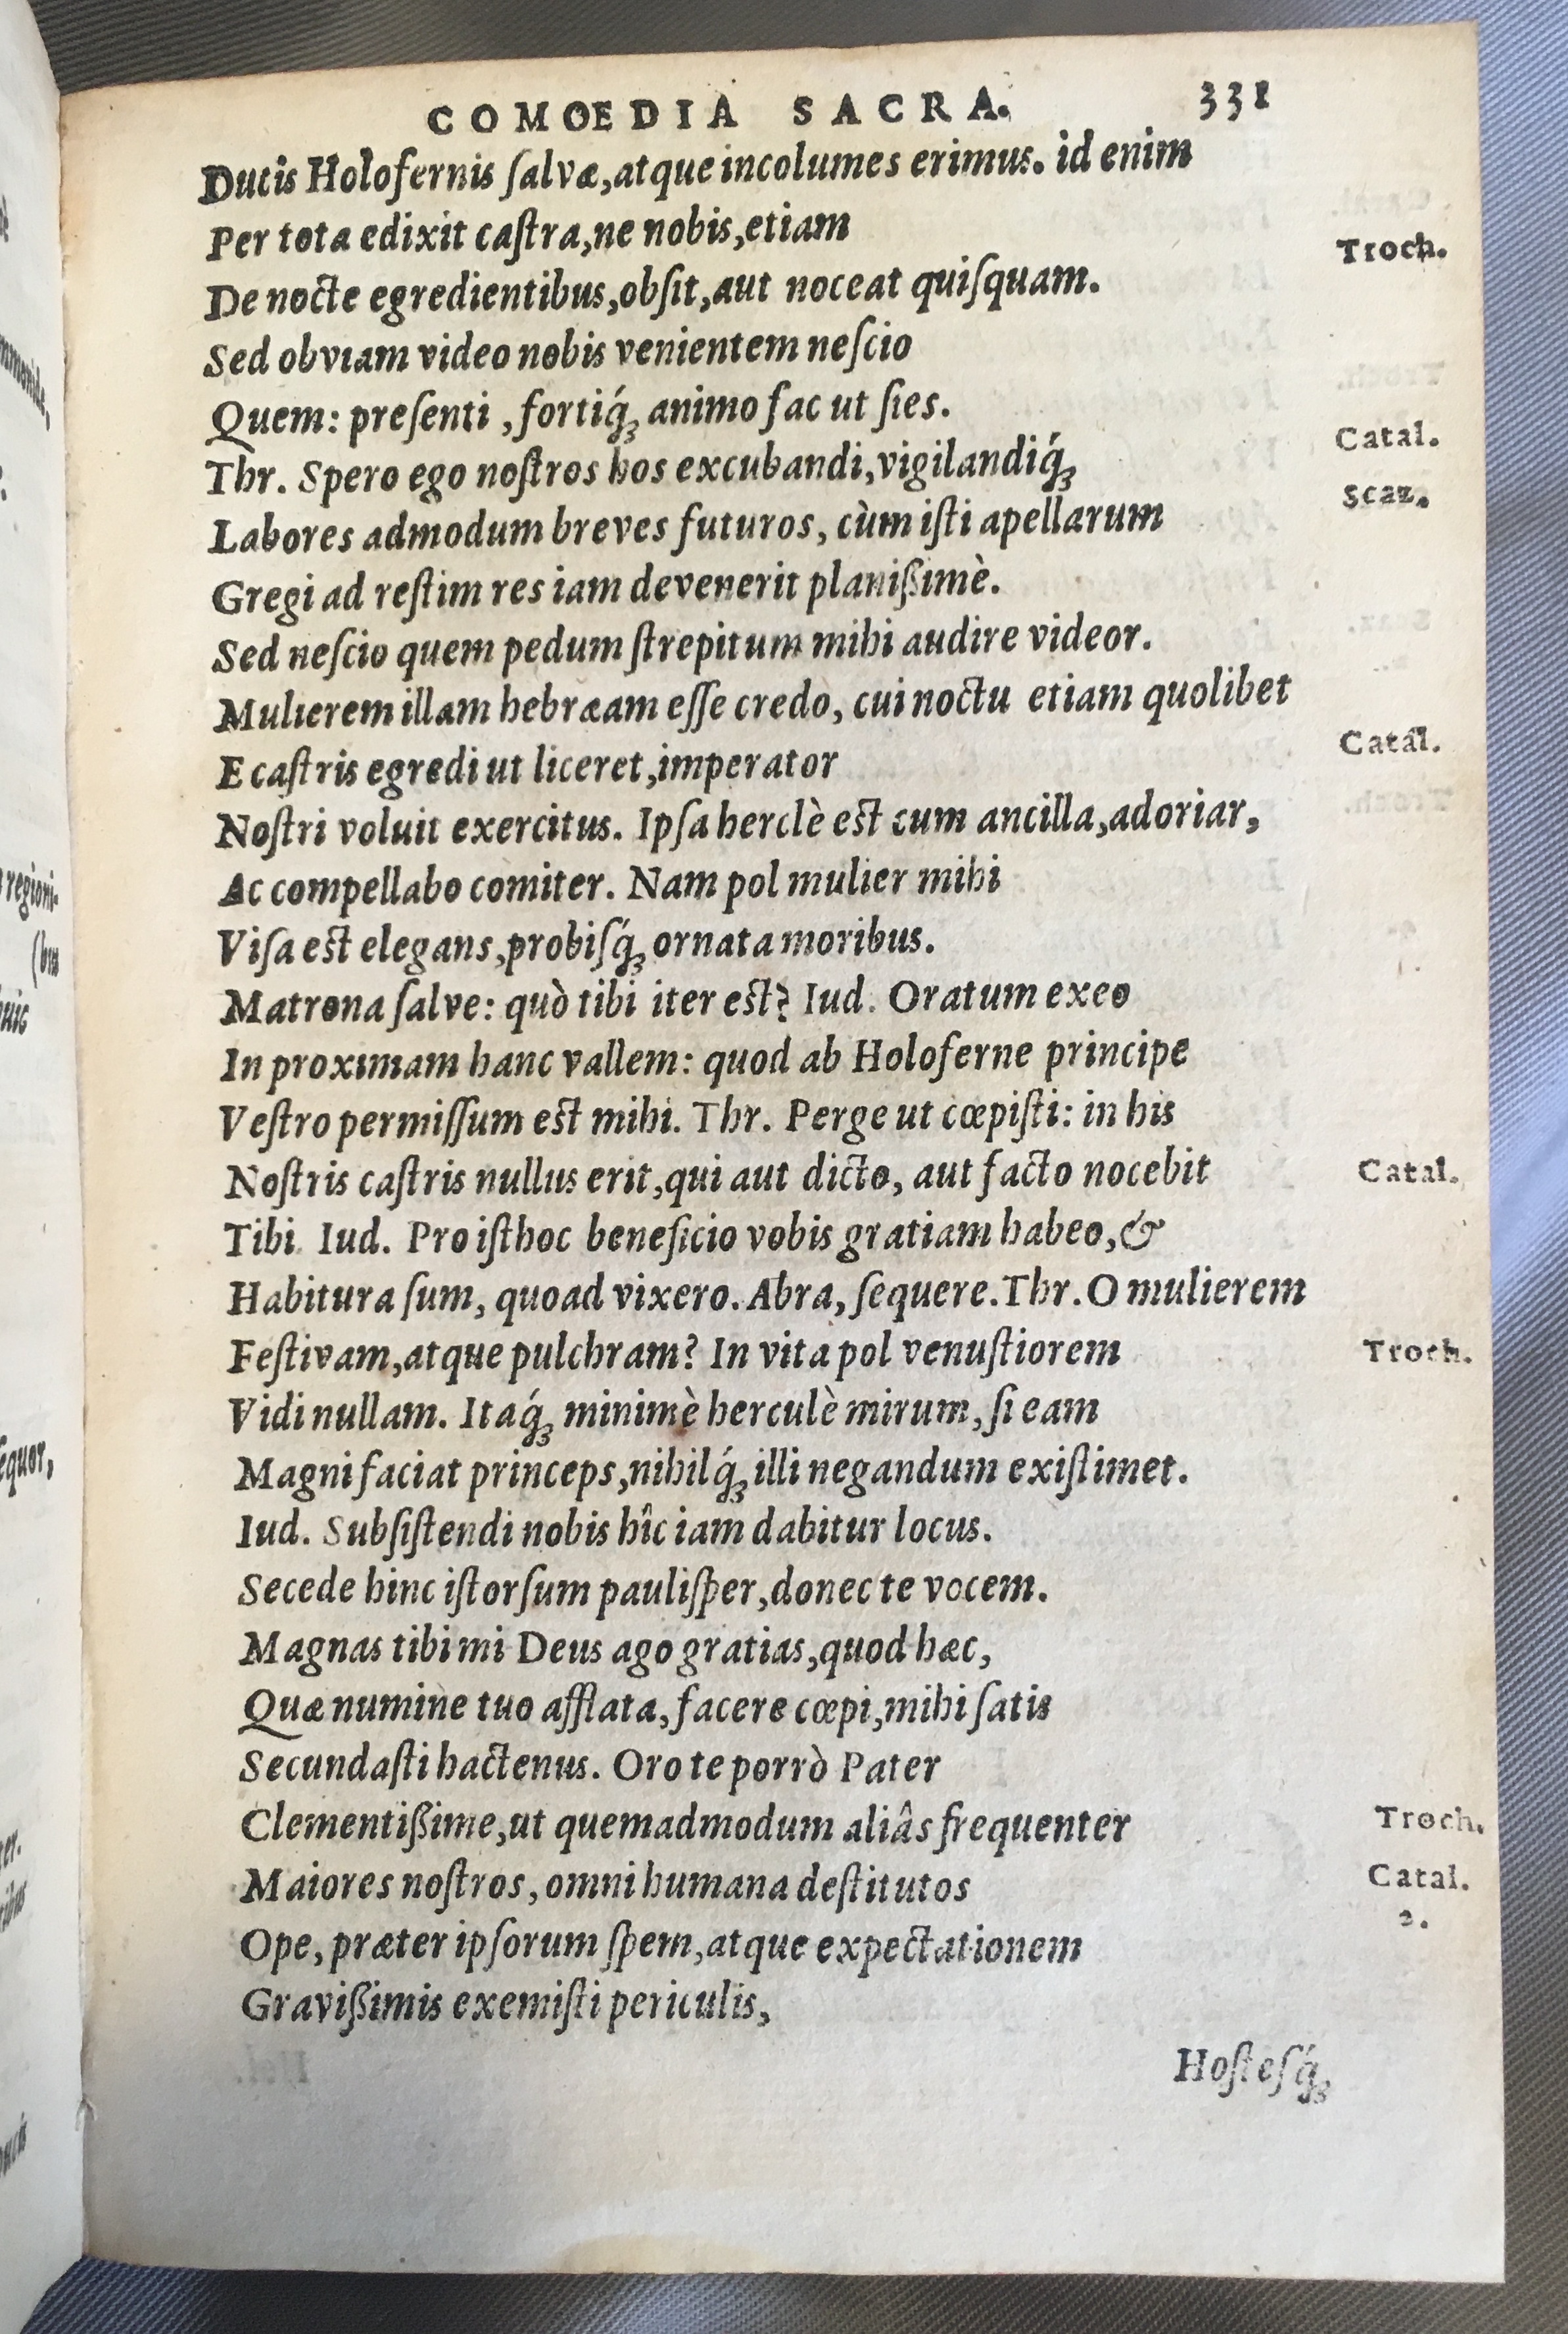 COMŒDIA SACRA. 331
Ducis Holofernis ſalvæ, atque incolumes erimus. id enim
Per tota edixit caſtra, ne nobis, etiam
Troch.
De nocte egredientibus, obſit, aut noceat quiſquam.
Sed obviam video nobis venientem neſcio
Quem: preſenti, fortiq́ꝫ animo fac ut ſies.
Catal.
Thr. Spero ego noſtros hos excubandi, vigilandiq́ꝫ
Scaz.
Labores admodum breves futuros, cùm iſti apellarum
Gregi ad reſtim res iam devenerit planißimè.
Sed neſcio quem pedum ſtrepitum mihi audire videor.
Mulierem illam hebræam eſſe credo, cui noctu etiam quolibet
Catal.
E caſtris egredi ut liceret, imperator
Noſtri voluit exercitus. Ipſa herclè eſt cum ancilla, adoriar,
Ac compellabo comiter. Nam pol mulier mihi
Viſa eſt elegans, probiſq́ꝫ ornata moribus.
Matrona ſalve: quò tibi iter eſt? Iud. Oratum exeo
In proximam hanc vallem: quod ab Holoferne principe
Veſtro permiſſum eſt mihi. Thr. Perge ut cœpiſti: in his
Noſtris caſtris nullus erit, qui aut dicto, aut facto nocebit
Catal.
Tibi. Iud. Pro iſthoc beneficio vobis gratiam habeo, &
Habitura ſum, quoad vixero. Abra, ſequere. Thr. O mulierem
Feſtivam, atque pulchram? In vita pol venuſtiorem
Troch.
Vidi nullam. Itaq́ꝫ minimè herculè mirum, ſi eam
Magni faciat princeps, nihilq́ꝫ illi negandum exiſtimet.
Iud. Subſiſtendi nobis hîc iam dabitur locus.
Secede hinc iſtorſum pauliſper, donec te vocem.
Magnas tibi mi Deus ago gratias, quod hæc,
Quæ numine tuo afflata, facere cœpi, mihi ſatis
Secundaſti hactenus. Oro te porrò Pater
Clementißime, ut quemadmodum aliâs frequenter
Troch.
Maiores noſtros, omni humana deſtitutos
Catal.
2.
Ope, præter ipſorum ſpem, atque expectationem
Gravißimis exemiſti periculis,
Hoſteſq́ꝫ